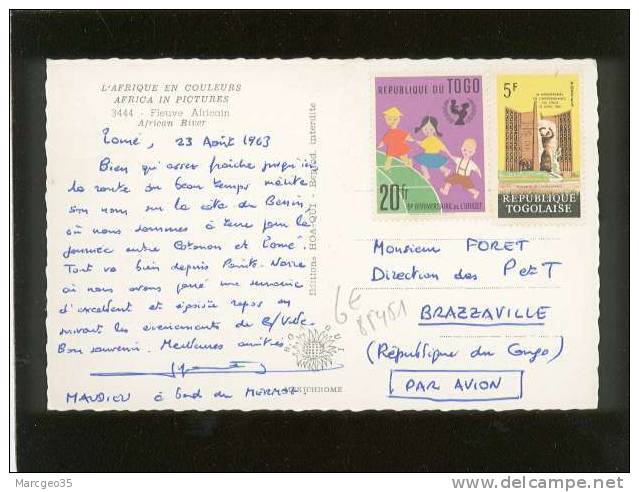 L'AFRIQUE EN COULEURS
AFRICA IN PICTURES
3444 - Fleuve Africain
African River
Lomé, 23 Août 1963
Bien qu'assez fraîche jusqu'ici
la route du beau temps mérite
son nom sur la côte du Bénin,
où nous sommes à terre pour la
journée entre Cotonou et Lomé.
Tout va bien depuis Pointe-Noire
où nous avons passé une semaine
d'excellent et repos en
suivant les événements de B/Ville.
Bon souvenir. Meilleures amitiés.
MAUDIEU à bord du MERMOZ.
Editions HOA-QUI - Reprod. interdite
HOA QUI
REPUBLIQUE DU TOGO
20f
15e ANNIVERSAIRE DE L'UNICEF
5F
REPUBLIQUE
TOGOLAISE
Monsieur FORET
Direction des P et T
BRAZZAVILLE
(République du Congo)
PAR AVION
6E
85451
Marcgeo35
www.delcampe.net